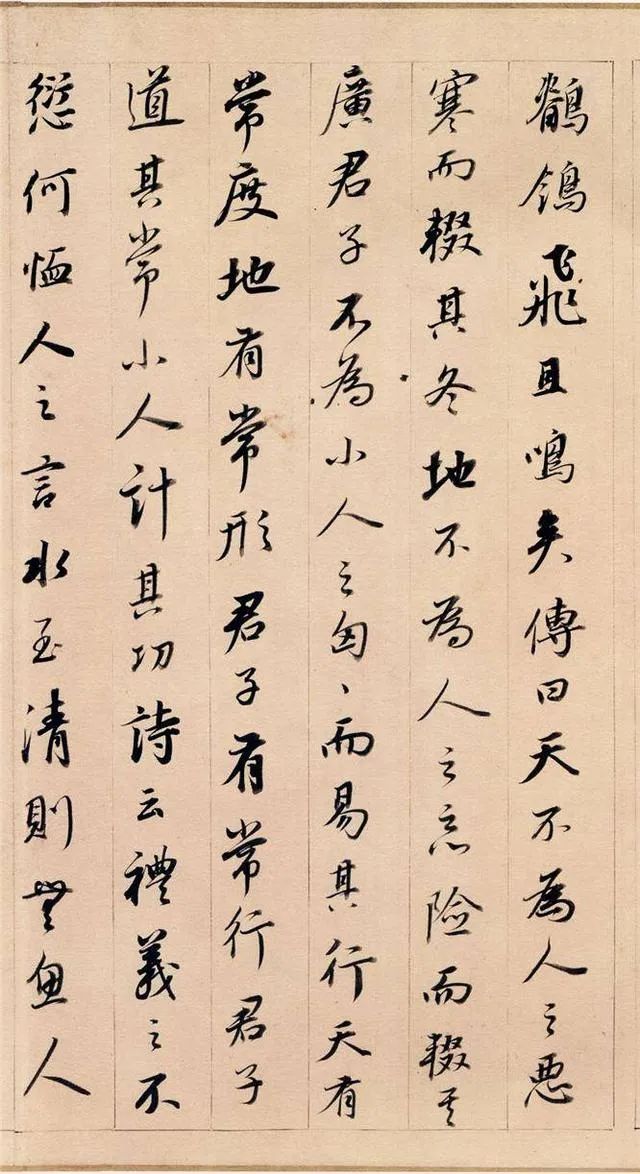 鶺鴒飛且鳴矣傳曰天不為人之惡
寒而輟其冬地不為人之惡險而輟其
廣君子不為小人之匈〻而易其行天有
常度地有常形君子有常行君子
道其常小人計其功詩云禮義之不
愆何恤人之言水至清則無魚人